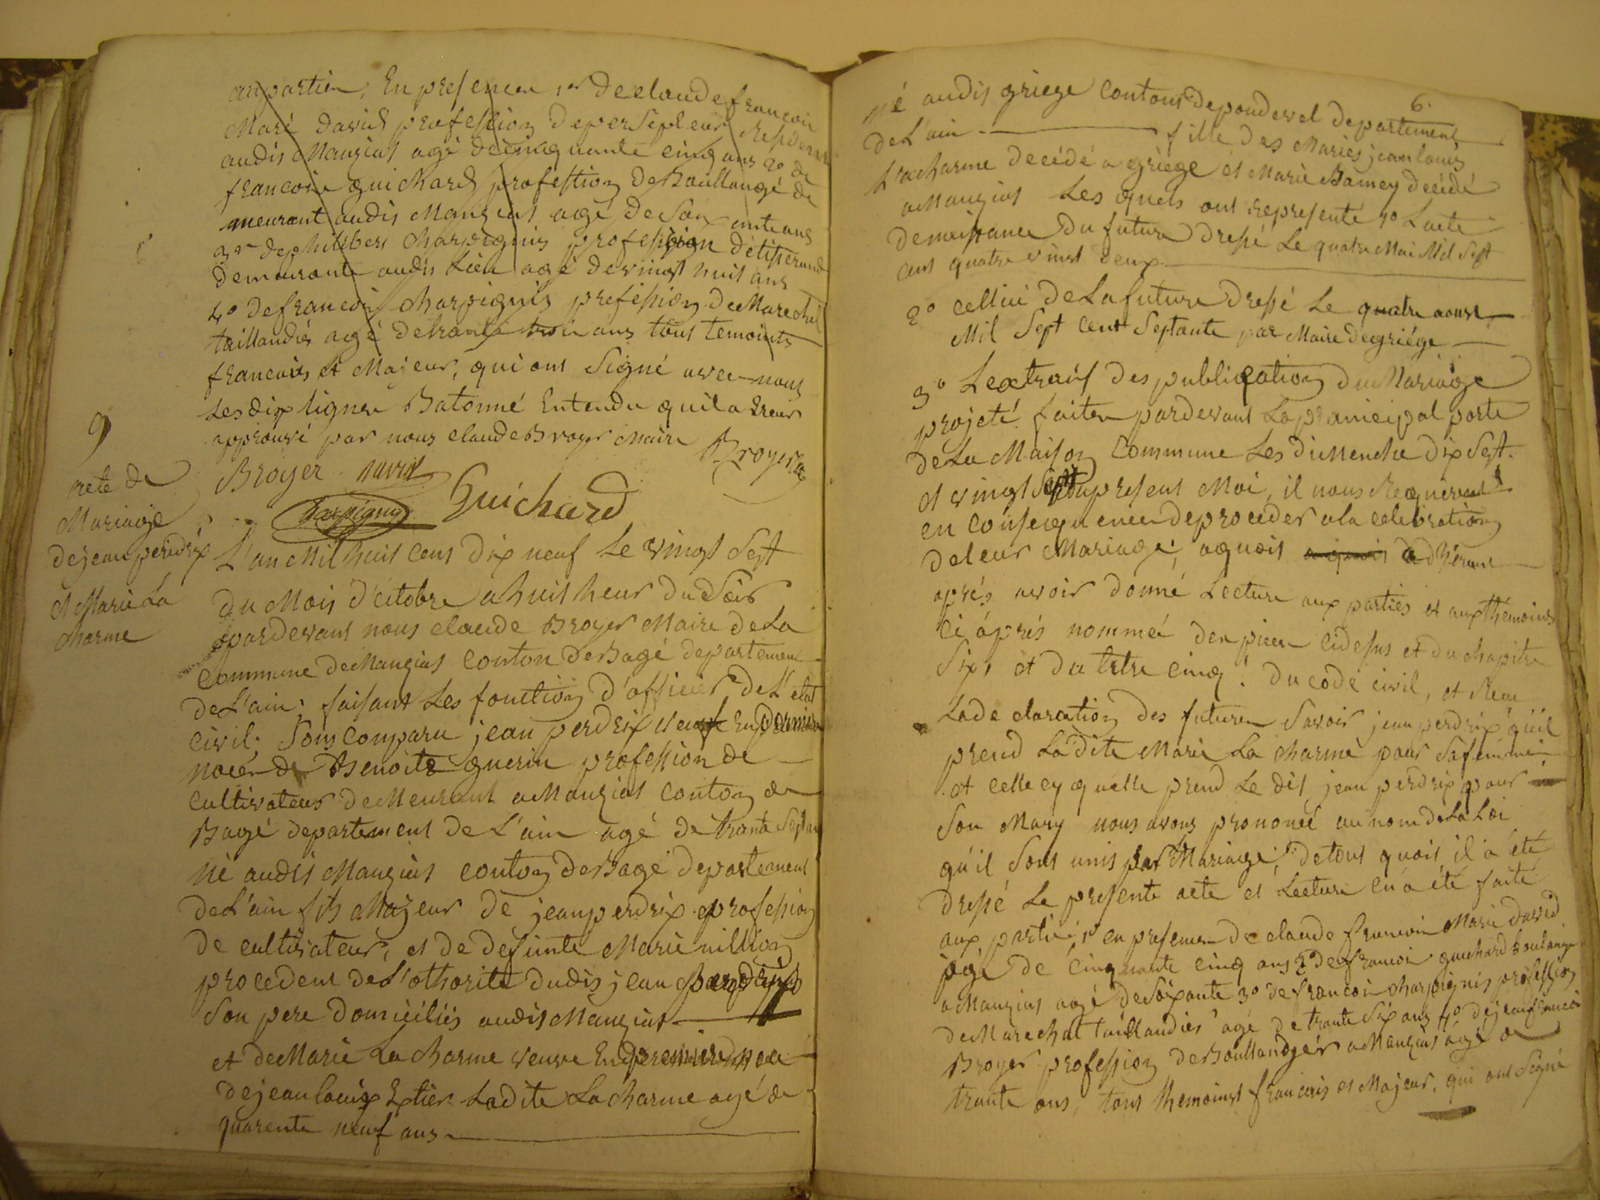 aupartier, En presence 1er de claude francoin
Maré David profession de persepteur Resident
audis Mangias agé de cinquante cinq ans 2o de
francoin guichard profestion de Boullangé de
meurant audis Mangias agé de soixante ans
3o de philibert charpignis profession de tiserand
demeurante audis Lieu agé de vingt huit ans
4o de francoin charpignis profession de Marechal
taillandiés agé de trante trois ans tous temoints
francais et Majeur, qui ont Signé avec nous
Les dix lignes Batonné Entendu quil a Ereur
approuvé par nous claude Broyer Maire Broyer
Broyer David
Charpignis Guichard
9
acte de
Mariage
de jean perdrix
et Marie La
charme
L'an Mil huit cent dix neuf Le vingt Sept
du Mois d'octobre a huit heur du Soir
pardevant nous claude Broyer Maire de La
commune de Mangias Conton de Bagé departement
de L'ain, faisant Les fonction d'officier de L'etat
civil, Sont comparu jean perdrix veuf En derniere
noce de Benoite guerin profession de
cultivateur de Meurant a Mangias conton de
Bagé departement de L'ain agé de trante Sept ans
né audis Mangias conton de Bagé departement
de L'ain fils Majeur de jean perdrix profession
de cultivateur, et de defunte Marie nillion
procedent de L'othorité dudis jean perdrix
Son pere domiciliés audis Mangias
et de Marie La charme veuve En premiere noce
de jean louis Extier Ladite La charme agé de
quarente neuf ans
6.
né audis griege contont de pondevel departement
de L'ain fille des Mariés jean louis
Lacharme decédé a griége et Marie Bamey decédé
a Mangias Les quels ont representé 1o Lacte
de meissance du future dressé Le quatre Mai Mil Sept
cent quatre vingt deux
2o cellui de La future dressé Le quatre aoust
Mil Sept cent Septante par Maire de griége
3o Lextrais des publication du Mariage
projeté faiten pardevant La principal porte
de La Maison Commune Les diMenche dix Sept
et vingt du present Moi, il nous Requerent
en consequence de proceder a la celebration
de leur Mariage, aquois adherant
aprés avoir donné Lecture aux parties et aux themoins
ci aprés nommée den piece cidesus et du chapitre
Six, et du titre cinq. du code civil, et Recu
La de claration des future Savoir jean perdrix quil
prend La dite Marie La charme pour Safemme,
et celle cy quelle prend Le dit jean perdrix pour
Son Mary nous avons prononcé au nom de La Loi
qu'il Sont unis par Mariage, de tout quois il a été
dressé Le presente acte et Lecture en a été faite
aux partie, 1o en presence de claude francoin Marie David
agé de cinquante cinq ans 2o de francoi guichard boulangé
a Mangias agé de Soixante 3o de francoi charpignis profession
de Marechal taillandiés agé de trante Six ans 4o de jean francoi
Broyer profession de Boullandger a Mangias agé de
trante ans, tous themoinst francais et Majeur, qui ont Signé